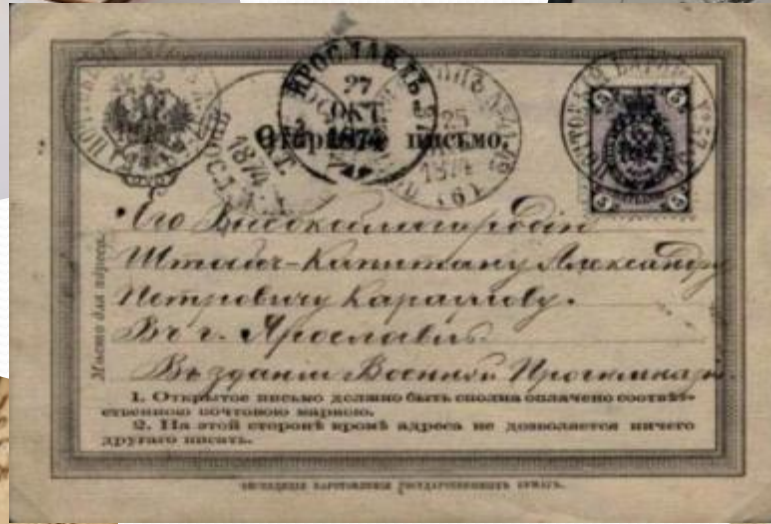 ЯРОСЛАВЛЬ
27
ОКТ.
1874
25
1874
(6)
1874
ПОЧТОВЫЙ ВАГОНЪ № 52
5 5
5 5
Открытое письмо.
Мѣсто для адреса.
Его Высокоблагородію
Штабсъ-Капитану Александру
Петровичу Караулову.
Въ г. Ярославль.
Въ зданіи Военной Прогимназіи.
1. Открытое письмо должно быть сполна оплачено соотвѣт-
ственною почтовою маркою.
2. На этой сторонѣ кромѣ адреса не дозволяется ничего
другаго писать.
ЭКСПЕДИЦІЯ ЗАГОТОВЛЕНІЯ ГОСУДАРСТВЕННЫХЪ БУМАГЪ.